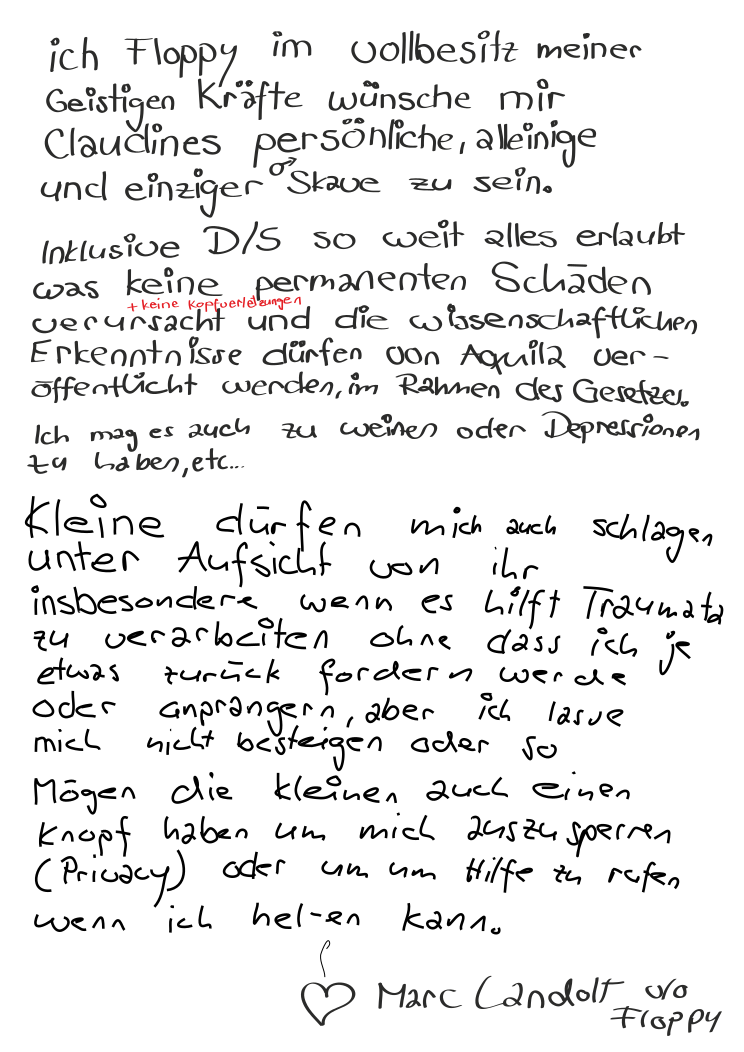 ich Floppy im Vollbesitz meiner
Geistigen Kräfte wünsche mir
Claudines persönliche, alleinige
und einziger ♂ Skave zu sein.
Inklusive D/S so weit alles erlaubt
was keine permanenten Schäden
+ keine Kopfverletzungen
verursacht und die wissenschaftlichen
Erkenntnisse dürfen von Aquila ver-
öffentlicht werden, im Rahmen des Gesetzes.
Ich mag es auch zu weinen oder Depressionen
zu haben, etc...
Kleine dürfen mich auch schlagen
unter Aufsicht von ihr
insbesondere wenn es hilft Traumata
zu verarbeiten ohne dass ich je
etwas zurück fordern werde
oder anprangern, aber ich lasse
mich nicht besteigen oder so
Mögen die kleinen auch einen
Knopf haben um mich auszusperren
(Privacy) oder um um Hilfe zu rufen
wenn ich helfen kann.
♡ Marc Landolt v/o
Floppy